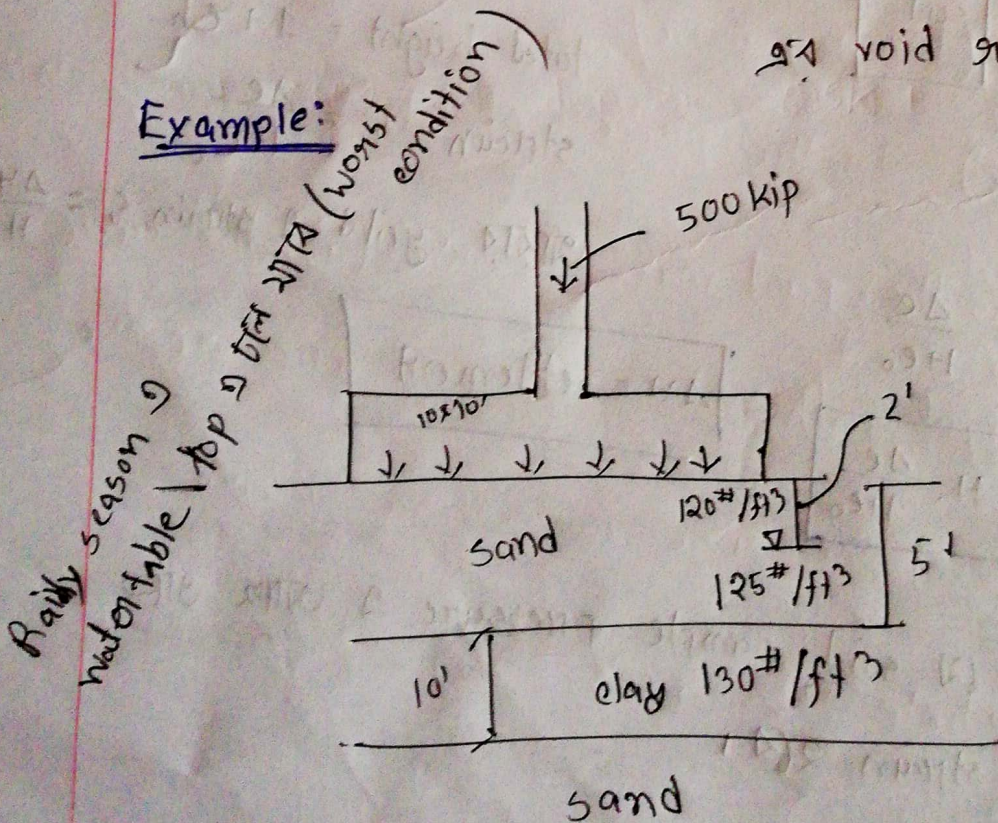 এর void
Example:
Rainy season এ
water table top এ চলে যাবে (worst
condition)
500 kip
10x10'
2'
120#/ft3
sand
125#/ft3
5'
10'
clay 130#/ft3
sand